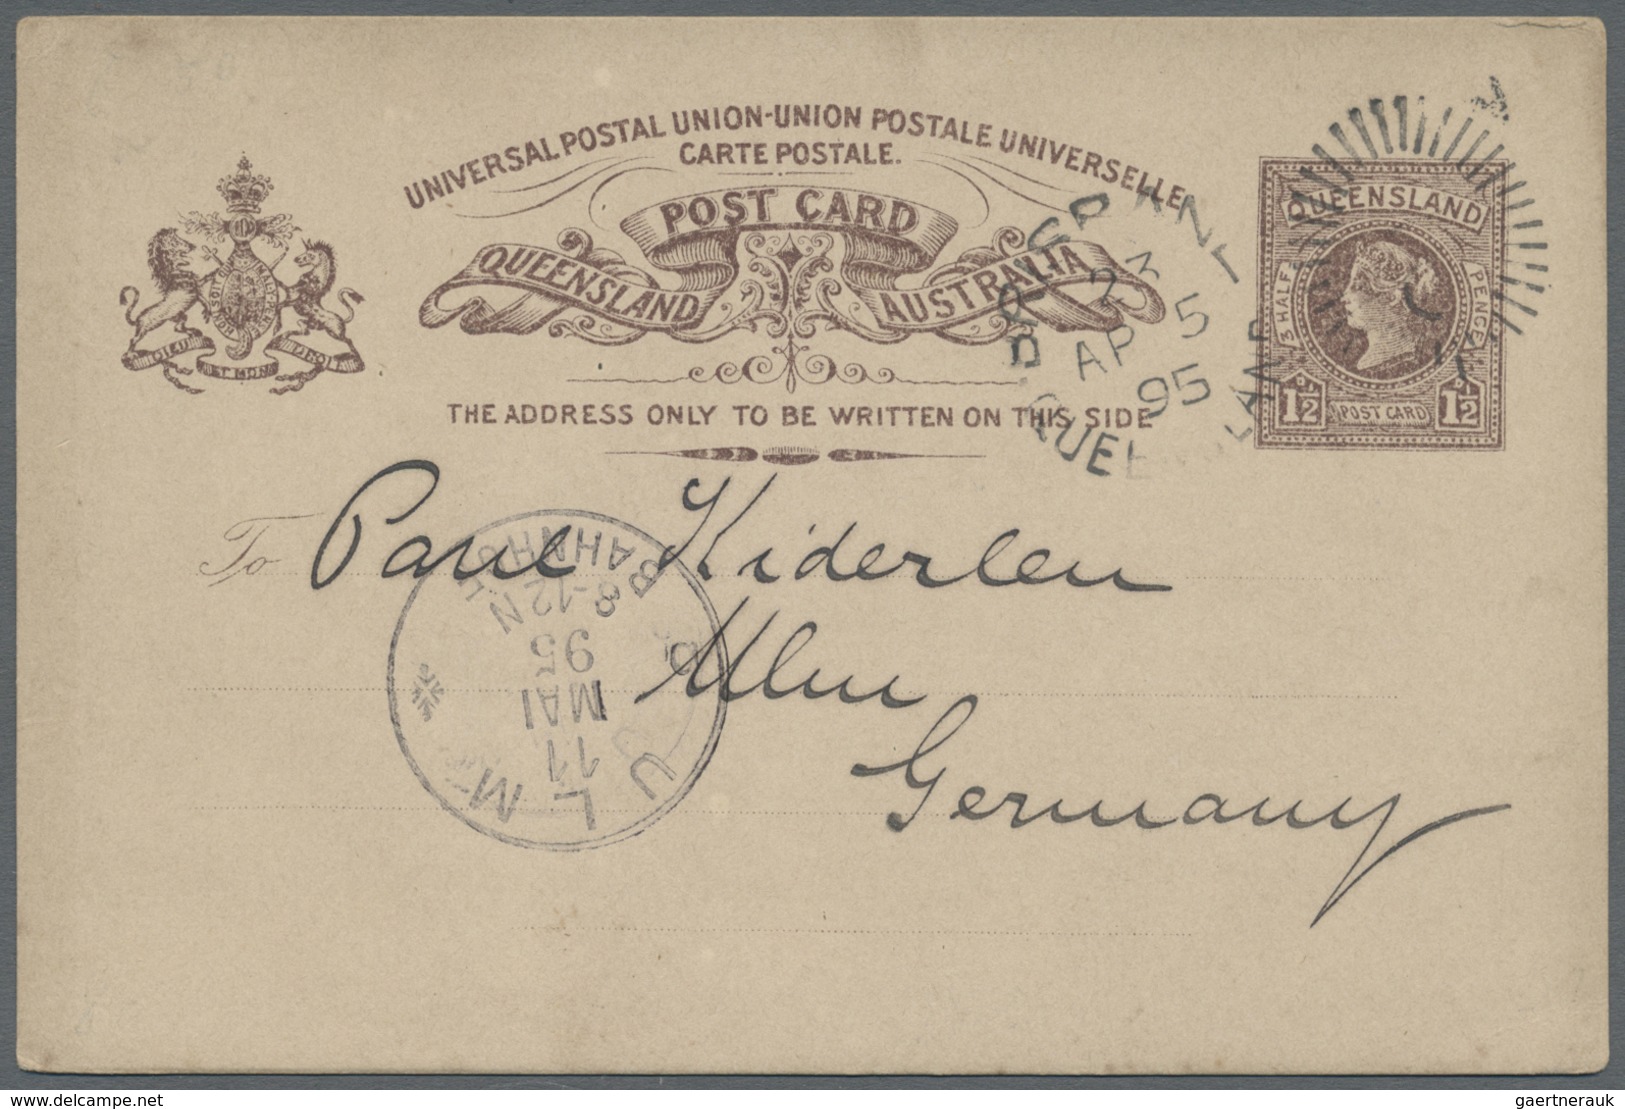 UNIVERSAL POSTAL UNION-UNION POSTALE UNIVERSELLE
CARTE POSTALE.
POST CARD
QUEENSLAND AUSTRALIA
THE ADDRESS ONLY TO BE WRITTEN ON THIS SIDE
QUEENSLAND
3 HALF PENCE
1½ POST CARD 1½
BRISBANE
23
AP 5
95
QUEENSLAND
To Paul Kiderlen
Ulm
Germany
ULM
11
MAI
95
8-12N
BAHNHOF
delcampe.net
gaertnerauk